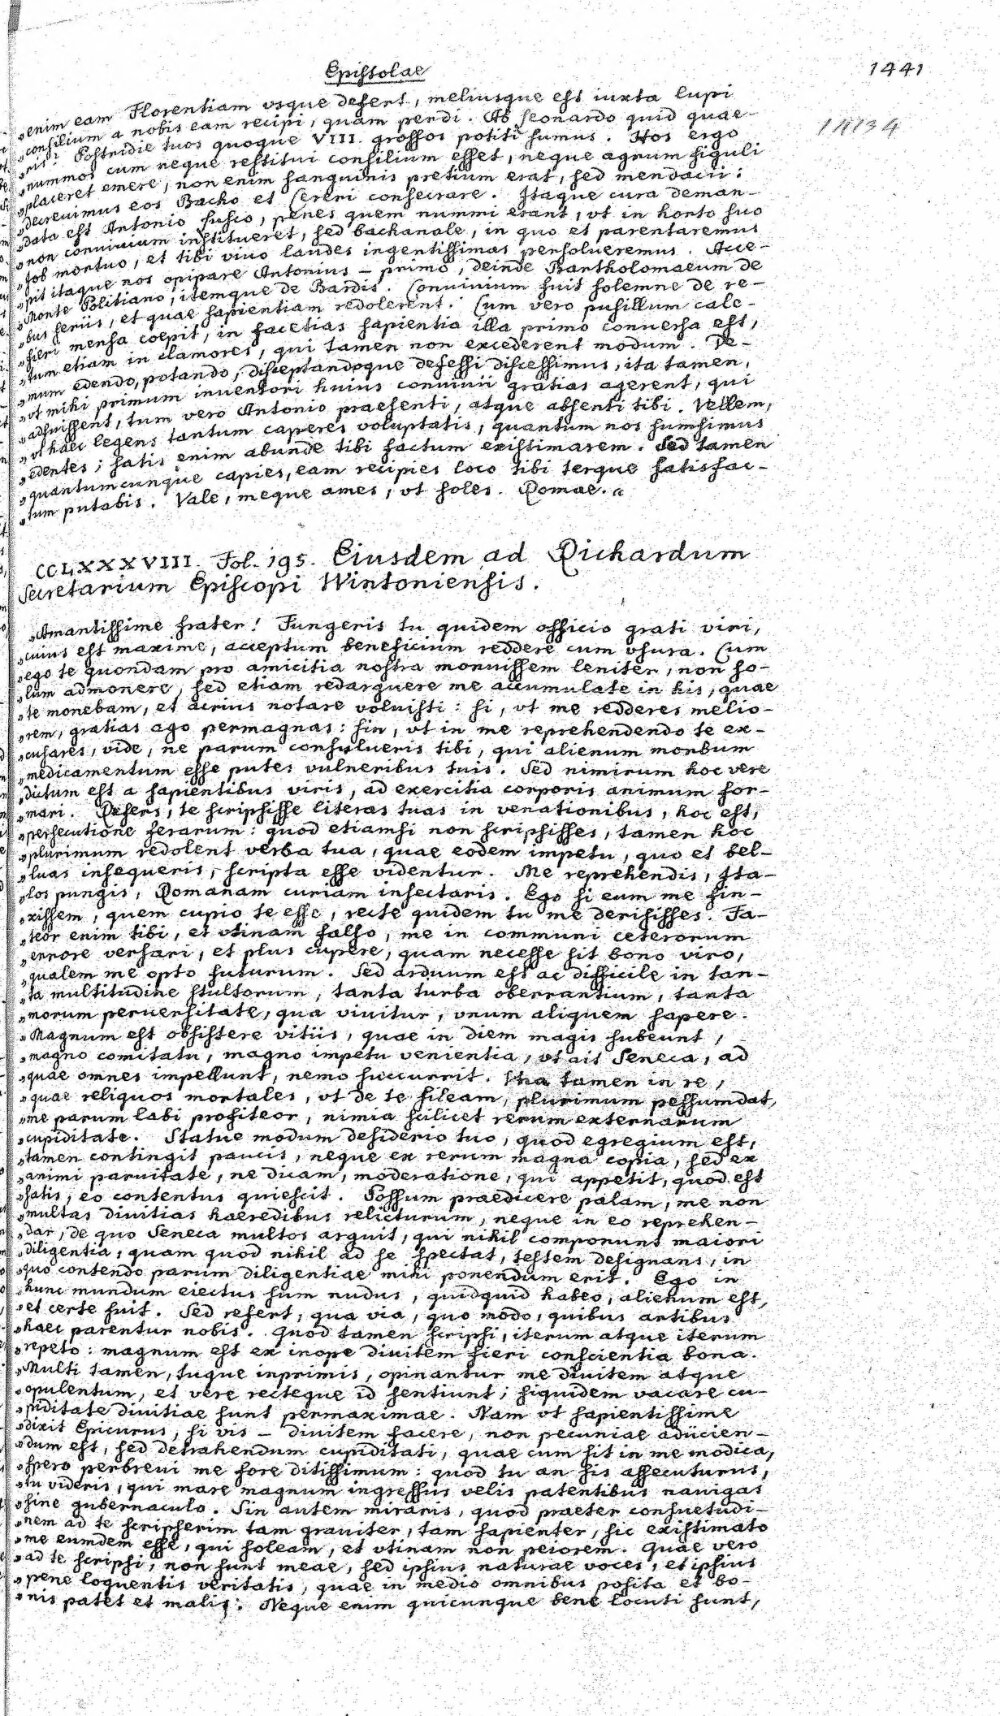 Epistolae
1441
1434
„enim eam Florentiam usque defert, meliusque est iuxta lupi
„consilium a nobis eam recipi, quam perdi. Ab Leonardo quid quae-
„ris? Postridie tuos quoque VIII. grossos potiti sumus. Hos ergo
„nummos cum neque restitui consilium esset, neque agrum figuli
„placeret emere, non enim sanguinis pretium erat, sed mendacii:
„decrevimus eos Bacho et Cereri consecrare. Itaque cura deman-
„data est Antonio fusco, penes quem nummi erant, vt in horto suo
„non convivium institueret, sed bachanale, in quo et parentaremus
„tob mortuo, et tibi viuo laudes ingentissimas persolueremus. Acce-
„pit itaque nos opipare Antonius – primo, deinde Bartholomaeum de
„Monte Politiano, itemque de Bardis. Convivium fuit solemne de re-
„bus seriis, et quae sapientiam redolerent. Cum vero pusillum cale-
„fieri mensa coepit, in facetias sapientia illa primo conuersa est,
„tum etiam in clamores, qui tamen non excederent modum. De-
„mum edendo, potando, disceptandoque defessi discessimus, ita tamen,
„vt mihi primum inventori huius convivii gratias agerent, qui
„adfuissent, tum vero Antonio praesenti, atque absenti tibi. Vellem,
„vt haec legens tantum caperes voluptatis, quantum nos sumsimus
„edentes; satis enim abunde tibi factum existimarem. Sed tamen
„quantumcunque capies, eam recipies loco tibi terque satisfac-
„tum putabis. Vale, meque ames, vt soles. Romae.
CCLXXXVIII. Fol. 195. Eiusdem ad Richardum
Secretarium Episcopi Wintoniensis.
„Amantissime frater! Fungeris tu quidem officio grati viri,
„cuius est maxime, acceptum beneficium reddere cum vsura. Cum
„ego te quondam pro amicitia nostra monuissem leniter, non so-
„lum admonere, sed etiam redarguere me accumulate in his, quae
„te monebam, et acrius notare voluisti: si, vt me redderes melio-
„rem, gratias ago permagnas: sin, vt in me reprehendendo te ex-
„cusares, vide, ne parum consulueris tibi, qui alienum morbum
„medicamentum esse putes vulneribus tuis. Sed nimirum hoc vere
„dictum est a sapientibus viris, ad exercitia corporis animum for-
„mari. Refers, te scripsisse literas tuas in venationibus, hoc est,
„persecutione ferarum: quod etiamsi non scripsisses, tamen hoc
„plurimum redolent verba tua, quae eodem impetu, quo et bel-
„luas insequeris, scripta esse videntur. Me reprehendis, Ita-
„los pungis, Romanam curiam insectaris. Ego si eum me fin-
„xissem, quem cupio te esse, recte quidem tu me derisisses. Fa-
„teor enim tibi, et vtinam falso, me in communi ceterorum
„errore versari, et plus cupere, quam necesse sit bono viro,
„qualem me opto futurum. Sed arduum est ac difficile in tan-
„ta multitudine stultorum, tanta turba oberrantium, tanta
„morum peruersitate, qua viuitur, vnum aliquem sapere.
„Magnum est obsistere vitiis, quae in diem magis subeunt,
„magno comitatu, magno impetu venientia, vt ait Seneca, ad
„quae omnes impellunt, nemo succurrit. Una tamen in re,
„quae reliquos mortales, vt de te sileam, plurimum pessumdat,
„me parum labi profiteor, nimia scilicet rerum externarum
„cupiditate. Statue modum desiderio tuo, quod egregium est,
„tamen contingit paucis, neque ex rerum magna copia, sed ex
„animi paruitate, ne dicam, moderatione, qui appetit, quod est
„satis, eo contentus quiescit. Possum praedicere palam, me non
„multas divitias haeredibus relicturum, neque in eo reprehen-
„dar, de quo Seneca multos arguit, qui nihil componunt maiori
„diligentia, quam quod nihil ad se spectat, testem designans, in
„quo contendo parum diligentiae mihi ponendum erit. Ego in
„hunc mundum eiectus sum nudus, quidquid habeo, alienum est,
„et certe fuit. Sed refert, qua via, quo modo, quibus artibus
„haec parentur nobis. Quod tamen scripsi, iterum atque iterum
„repeto: magnum est ex inope diuitem fieri conscientia bona.
„Multi tamen, tuque inprimis, opinantur me diuitem atque
„opulentum, et vere recteque id sentiunt; siquidem vacare cu-
„piditate diuitiae sunt permaximae. Nam vt sapientissime
„dixit Epicurus, si vis – diuitem facere, non pecuniae adiicien-
„dum est, sed detrahendum cupiditati, quae cum sit in me modica,
„spero perbreui me fore ditissimum: quod tu an sis assecuturus,
„tu videris, qui mare magnum ingressus velis patentibus nauigas
„sine gubernaculo. Sin autem miraris, quod praeter consuetudi-
„nem ad te scripserim tam grauiter, tam sapienter, sic existimato
„me eumdem esse, qui soleam, et vtinam non peiorem. Quae vero
„ad te scripsi, non sunt meae, sed ipsius naturae voces, et ipsius
„pene loquentis veritatis, quae in medio omnibus posita et bo-
„nis patet et malis. Neque enim quicunque bene locuti sunt,